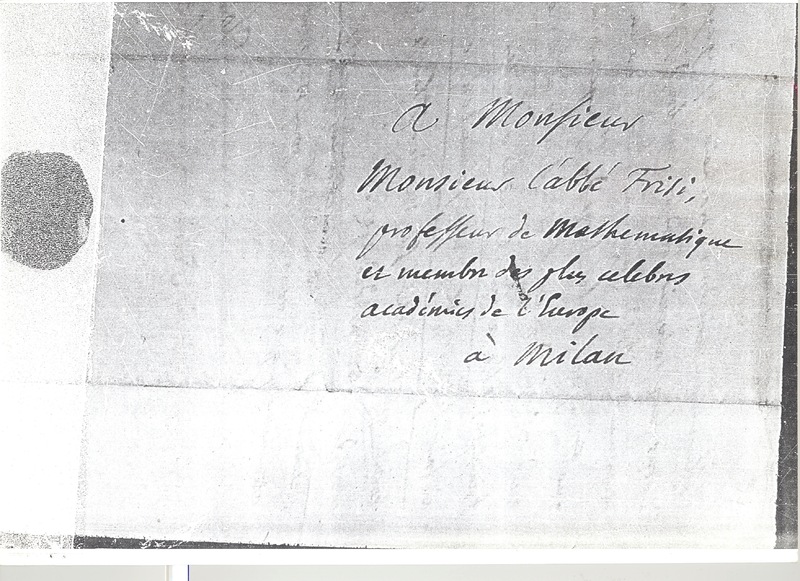 A Monsieur
Monsieur l'abbé Frisi,
professeur de Mathematique
et membre des plus celebres
académies de l'Europe
à Milan